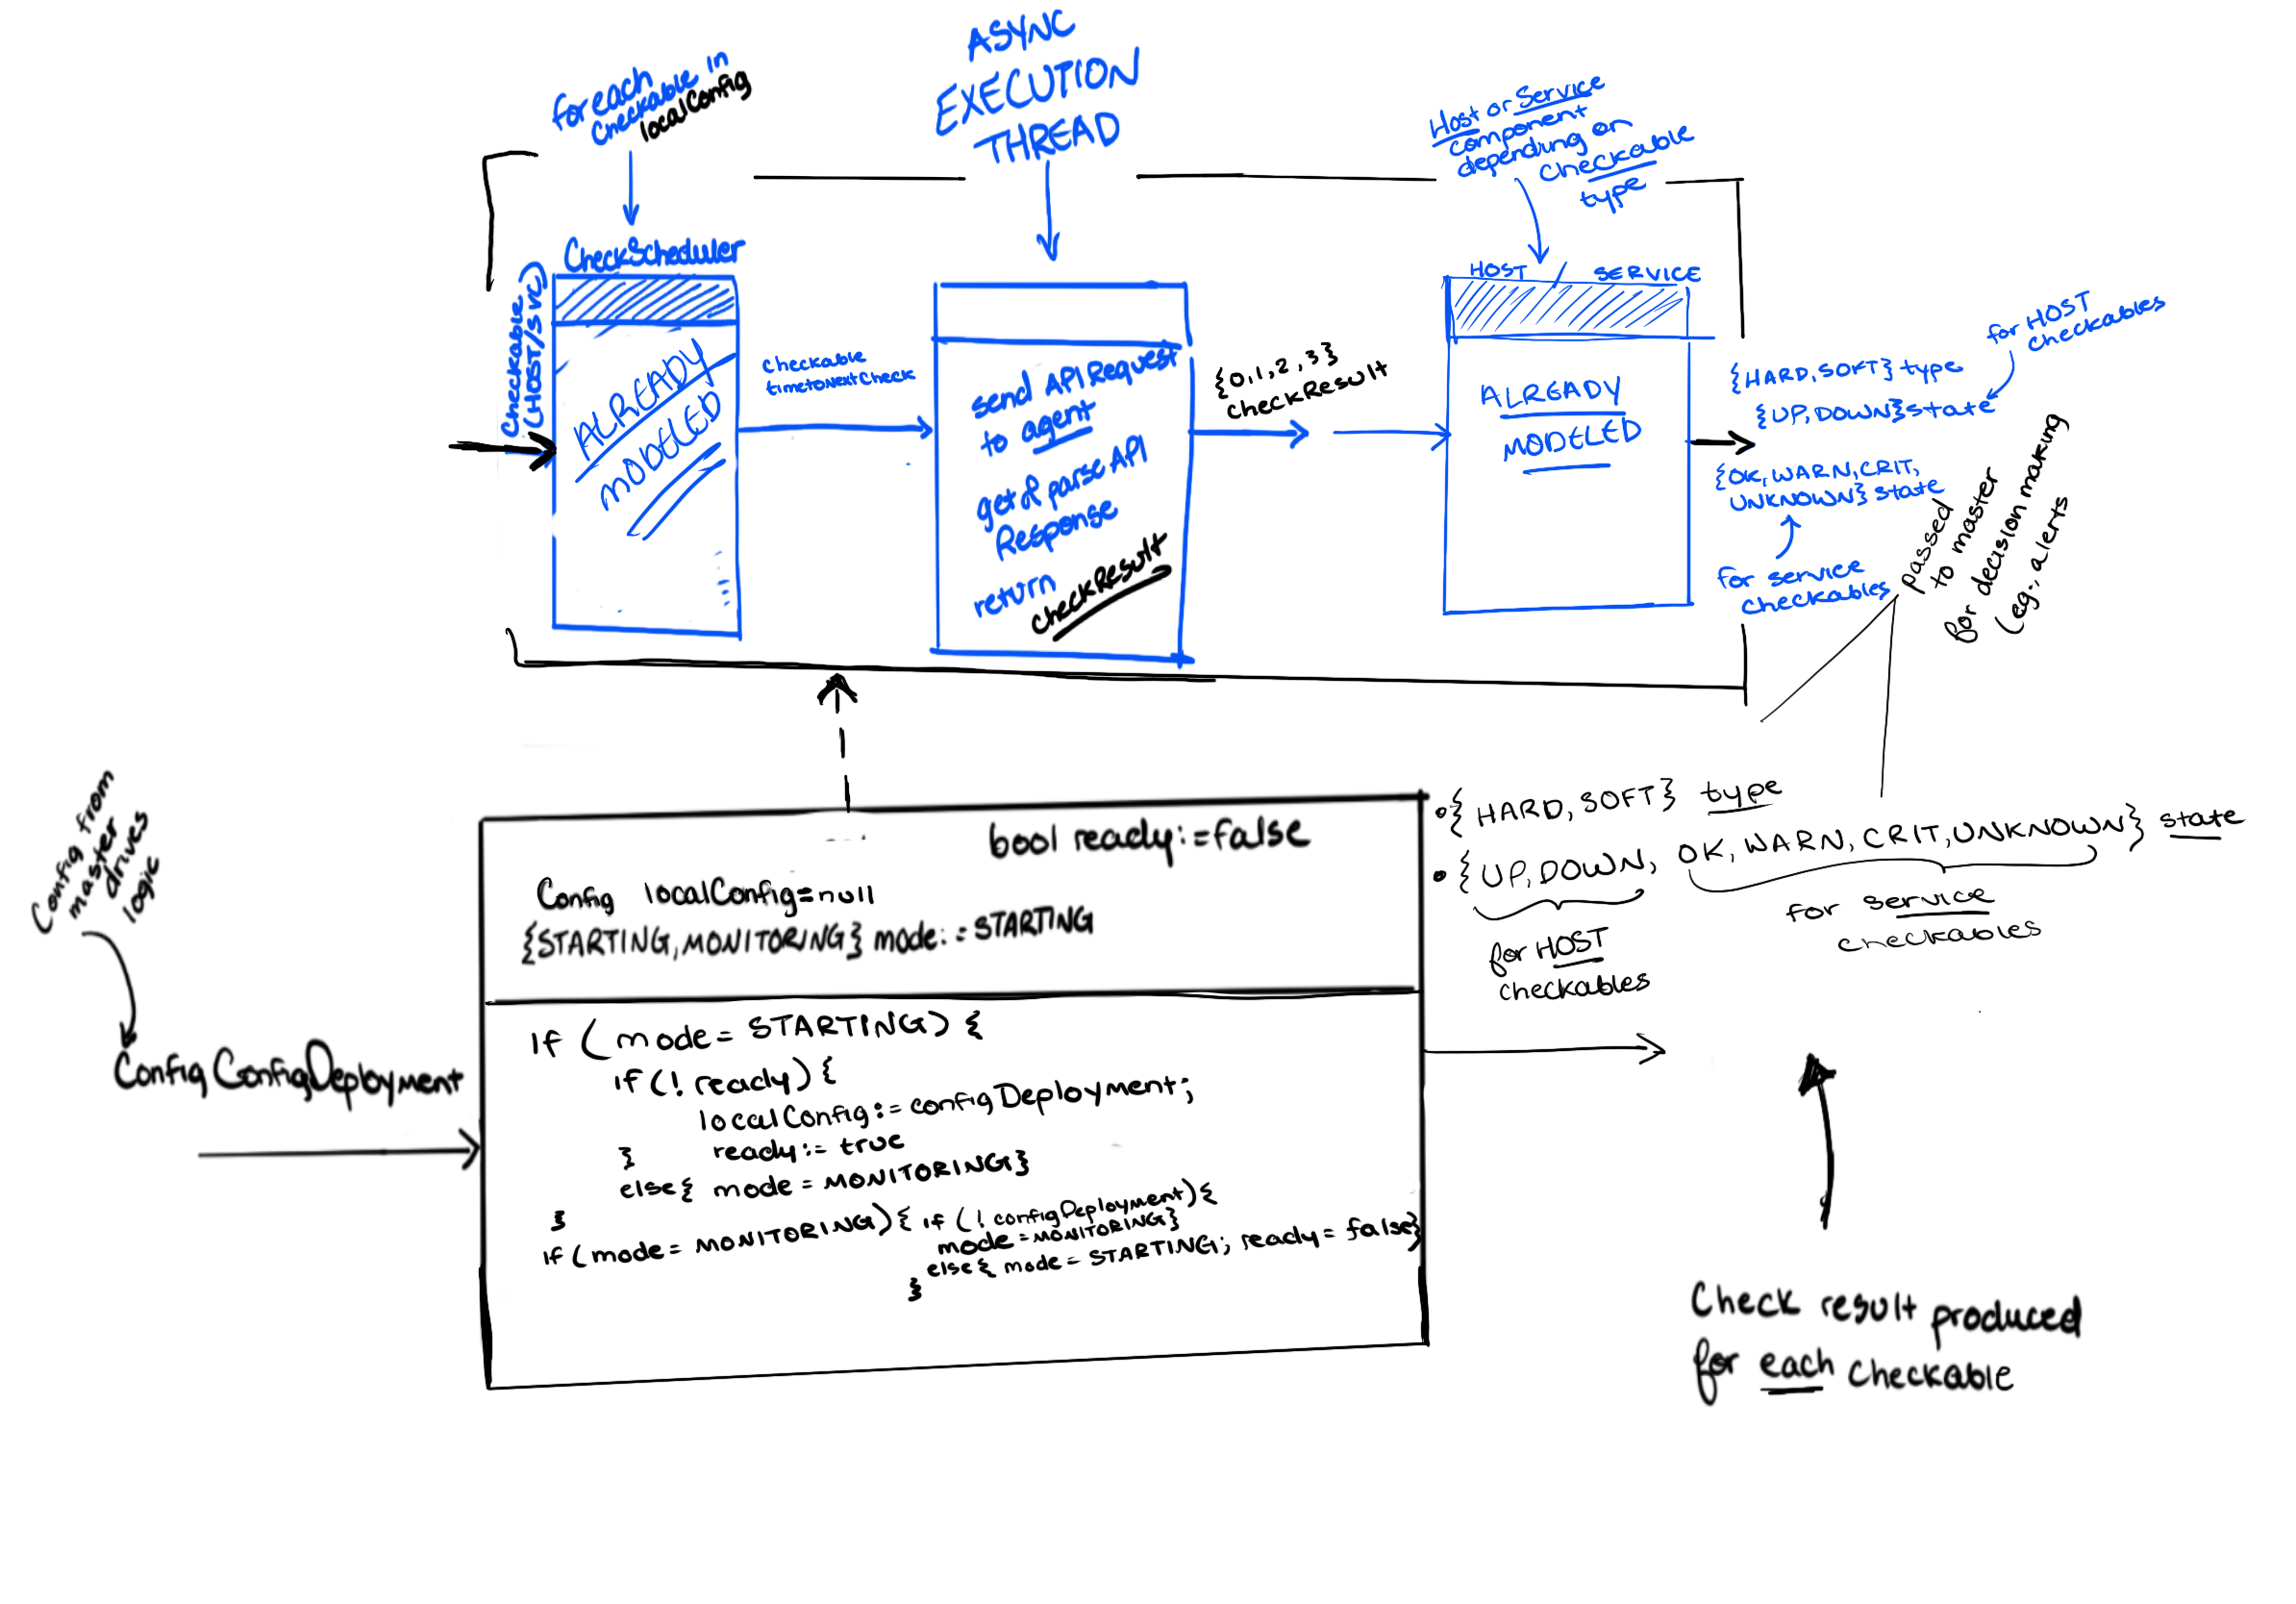 foreach
checkable in
localConfig
ASYNC
EXECUTION
THREAD
Host or Service
component
depending on
checkable
type
CheckScheduler
Checkable
(HOST/SVC)
ALREADY
MODELED
checkable
timetoNextCheck
send API Request
to agent
get & parse API
Response
return
checkResult
{0,1,2,3}
checkResult
HOST / SERVICE
ALREADY
MODELED
for HOST
checkables
{HARD, SOFT} type
{UP, DOWN} state
{OK, WARN, CRIT,
UNKNOWN} state
for service
checkables
passed
to master
for decision making
(eg., alerts
Config from
master
drives
logic
Config ConfigDeployment
bool ready:=false
Config localConfig=null
{STARTING, MONITORING} mode:=STARTING
If (mode = STARTING) {
if (! ready) {
localConfig:=configDeployment;
ready:= true
}
else{ mode = MONITORING}
}
if (mode = MONITORING) { if (! configDeployment) {
mode = MONITORING}
else{ mode = STARTING; ready = false}
}
•{HARD, SOFT} type
•{UP, DOWN, OK, WARN, CRIT, UNKNOWN} state
for HOST
checkables
for service
checkables
Check result produced
for each checkable